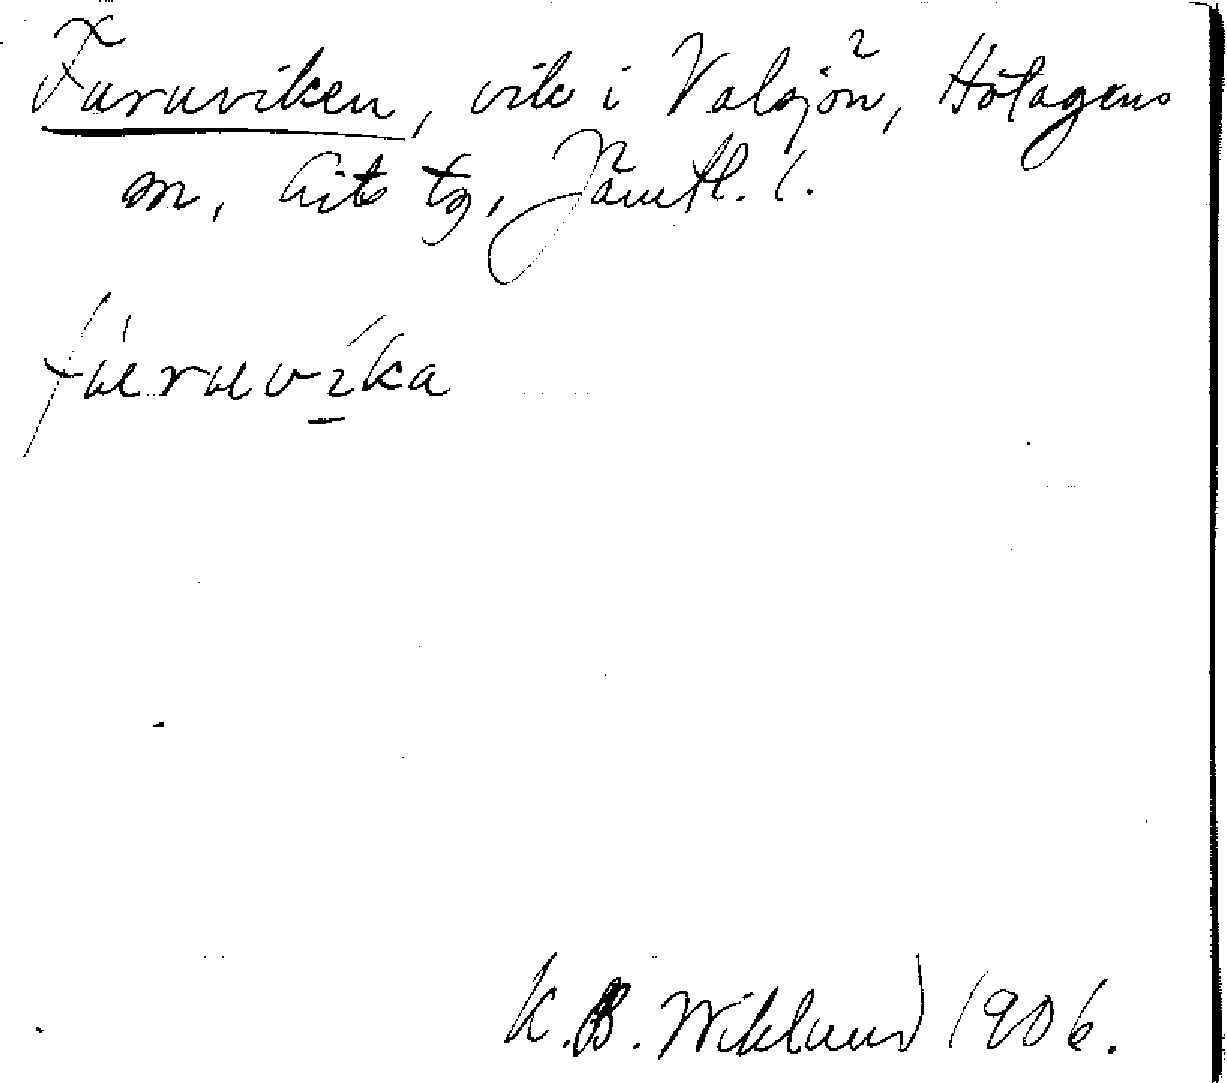 Furuviken, vik i Valsjön, Hotagens
sn, Lits tg, Jämtl. l.
fúruvíka
K.B. Wiklund 1906.